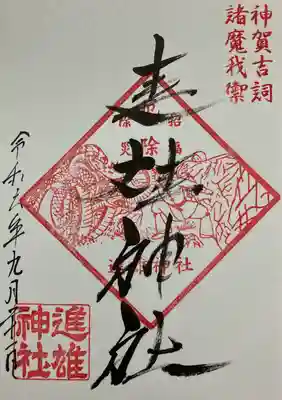 神賀吉詞
諸魔我禦
進雄神社
令和六年九月
進雄
神社